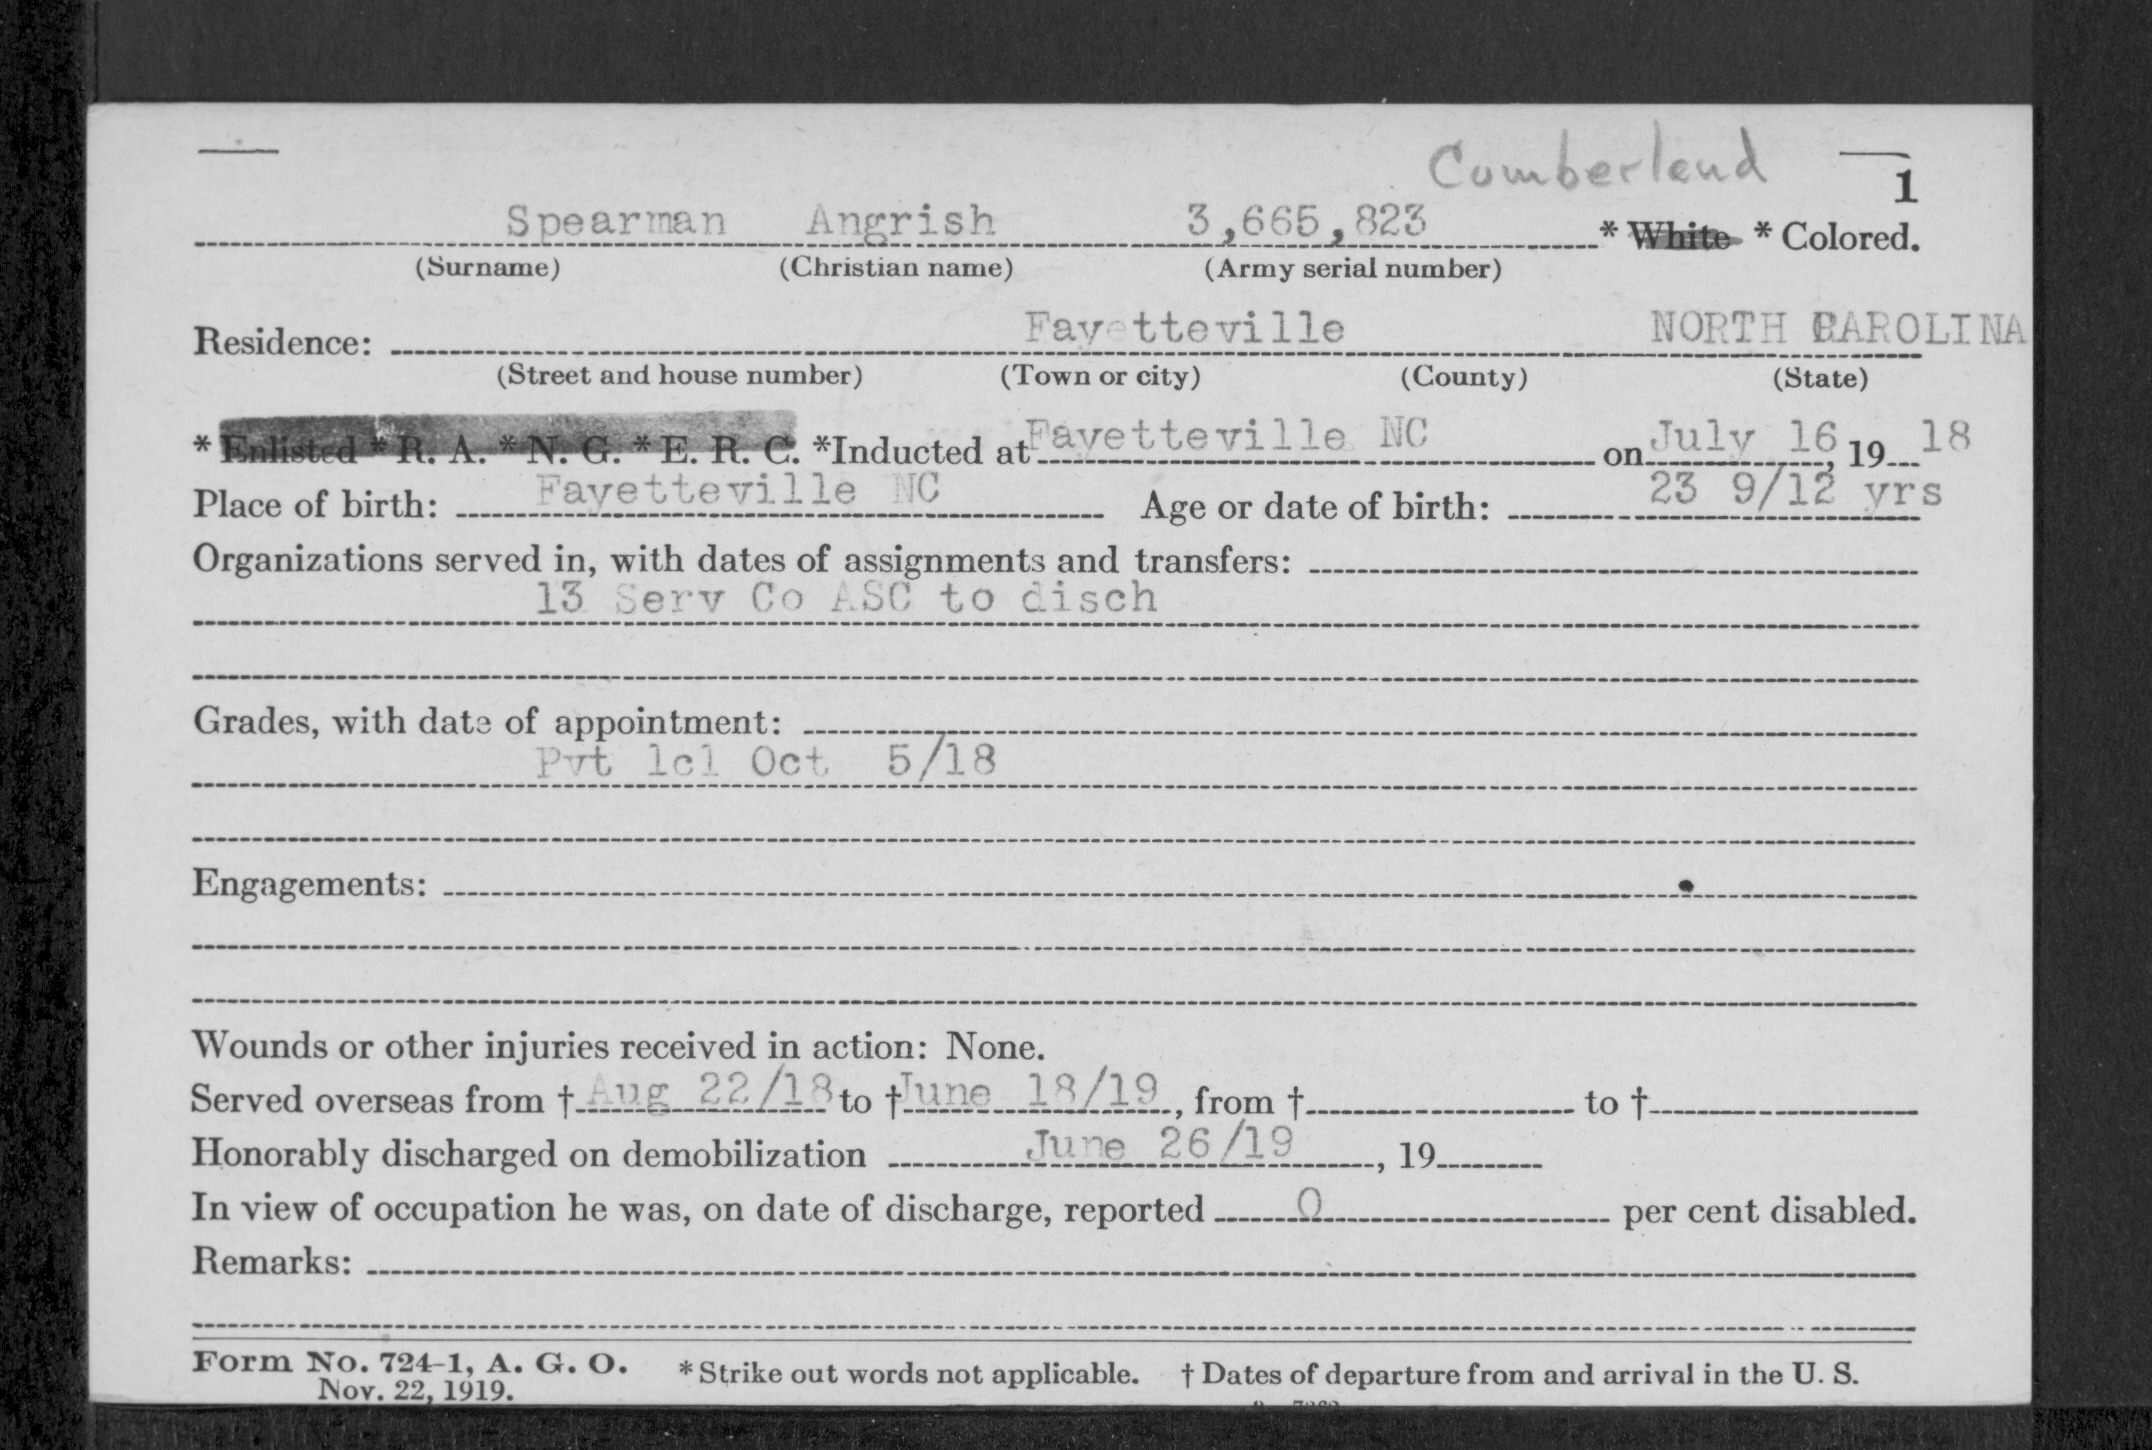 Cumberland
1
Spearman Angrish 3,665,823 * White * Colored.
(Surname) (Christian name) (Army serial number)
Residence: Fayetteville NORTH CAROLINA
(Street and house number) (Town or city) (County) (State)
* Enlisted * R. A. * N. G. * E. R. C. *Inducted at Fayetteville NC on July 16, 19 18
Place of birth: Fayetteville NC Age or date of birth: 23 9/12 yrs
Organizations served in, with dates of assignments and transfers:
13 Serv Co ASC to disch
Grades, with date of appointment:
Pvt 1cl Oct 5/18
Engagements:
Wounds or other injuries received in action: None.
Served overseas from † Aug 22/18 to † June 18/19, from † to †
Honorably discharged on demobilization June 26/19, 19
In view of occupation he was, on date of discharge, reported 0 per cent disabled.
Remarks:
Form No. 724-1, A. G. O. * Strike out words not applicable. † Dates of departure from and arrival in the U. S.
Nov. 22, 1919.